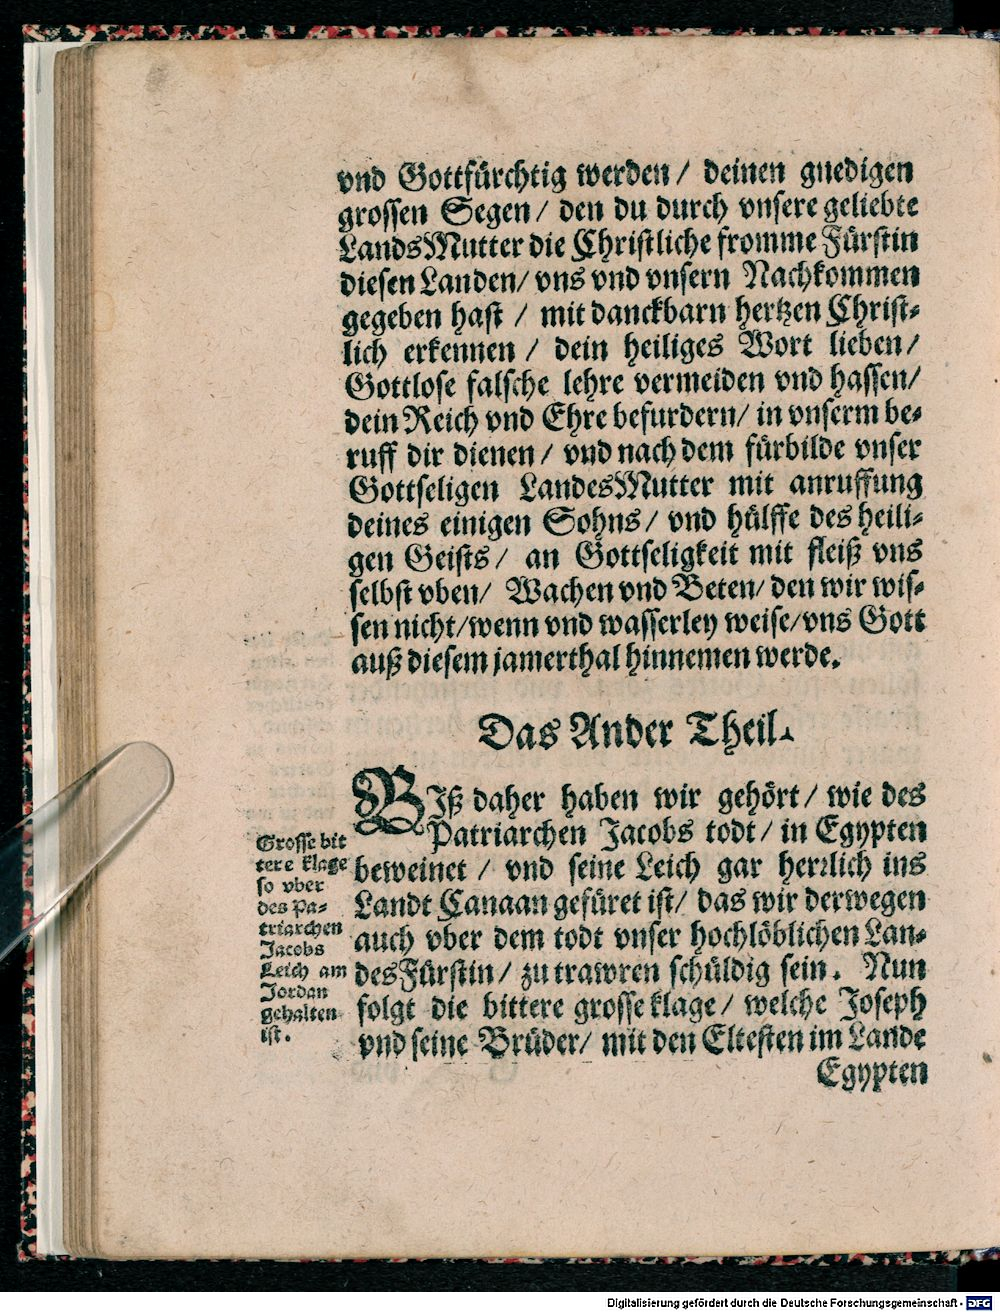 vnd Gottfürchtig werden / deinen gnedigen
grossen Segen / den du durch vnsere geliebte
LandsMutter die Christliche fromme Fürstin
diesen Landen / vns vnd vnsern Nachkommen
gegeben hast / mit danckbarn hertzen Christ-
lich erkennen / dein heiliges Wort lieben /
Gottlose falsche lehre vermeiden vnd hassen /
dein Reich vnd Ehre befurdern / in vnserm be-
ruff dir dienen / vnd nach dem fürbilde vnser
Gottseligen LandesMutter mit anruffung
deines einigen Sohns / vnd hülffe des heili-
gen Geists / an Gottseligkeit mit fleiß vns
selbst vben / Wachen vnd Beten / den wir wis-
sen nicht / wenn vnd wasserley weise / vns Gott
auß diesem jamerthal hinnemen werde.
Das Ander Theil.
BIß daher haben wir gehört / wie des
Patriarchen Jacobs todt / in Egypten
beweinet / vnd seine Leich gar herrlich ins
Landt Canaan gefüret ist / das wir derwegen
auch vber dem todt vnser hochlöblichen Lan-
des Fürstin / zu trawren schüldig sein. Nun
folgt die bittere grosse klage / welche Joseph
vnd seine Brüder / mit den Eltesten im Lande
Egypten
Grosse bit
tere klage
so vber
des Pa-
triarchen
Jacobs
Leich am
Jordan
gehalten
ist.
Digitalisierung gefördert durch die Deutsche Forschungsgemeinschaft - DFG